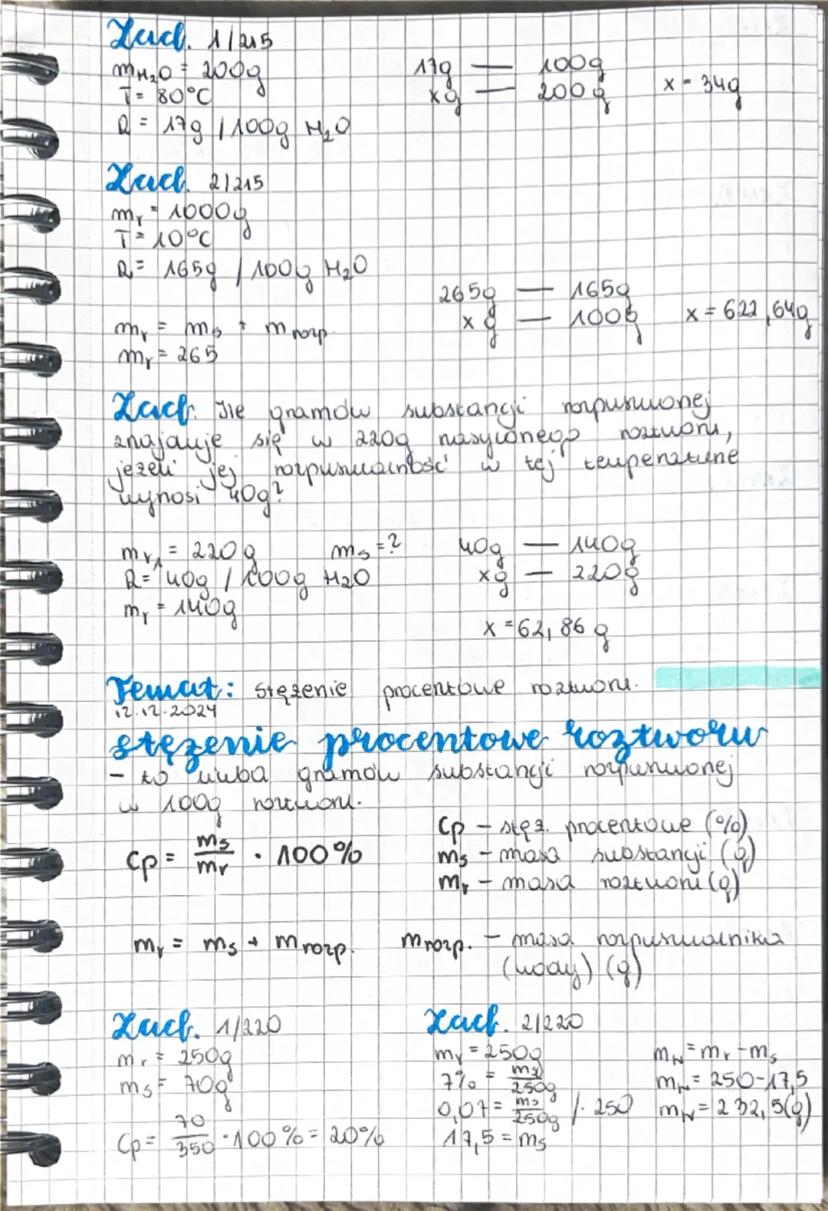 Zad. 1/215
mH₂O = 200g
T = 80°C
R = 17g / 100g H₂O
17g — 100g
xg — 200g
x = 34g
Zad. 2/215
mr = 1000g
T = 10°C
R = 165g / 100g H₂O
mr = ms + mrozp.
mr = 265
265g — 165g
xg — 100g
x = 622,64g
Zad. Ile gramów substancji rozpuszczonej
znajduje się w 220g nasyconego roztworu,
jeżeli jej rozpuszczalność w tej temperaturze
wynosi 40g?
mr₁ = 220g ms = ?
R = 40g / 100g H₂O
mr = 140g
40g — 140g
xg — 220g
x = 62,86 g
Temat: Stężenie procentowe roztworu.
12.12.2024
stężenie procentowe roztworu
- to liczba gramów substancji rozpuszczonej
w 100g roztworu.
Cp = ms/mr · 100%
Cp - stęż. procentowe (%)
ms - masa substancji (g)
mr - masa roztworu (g)
mr = ms + mrozp.
mrozp. - masa rozpuszczalnika
(wody) (g)
Zad. 1/220
mr = 250g
ms = 70g
Cp = 70/350 · 100% = 20%
Zad. 2/220
mr = 250g
7% = ms/250g
0,07 = ms/250g /· 250
17,5 = ms
mw = mr - ms
mw = 250-17,5
mw = 232,5(g)